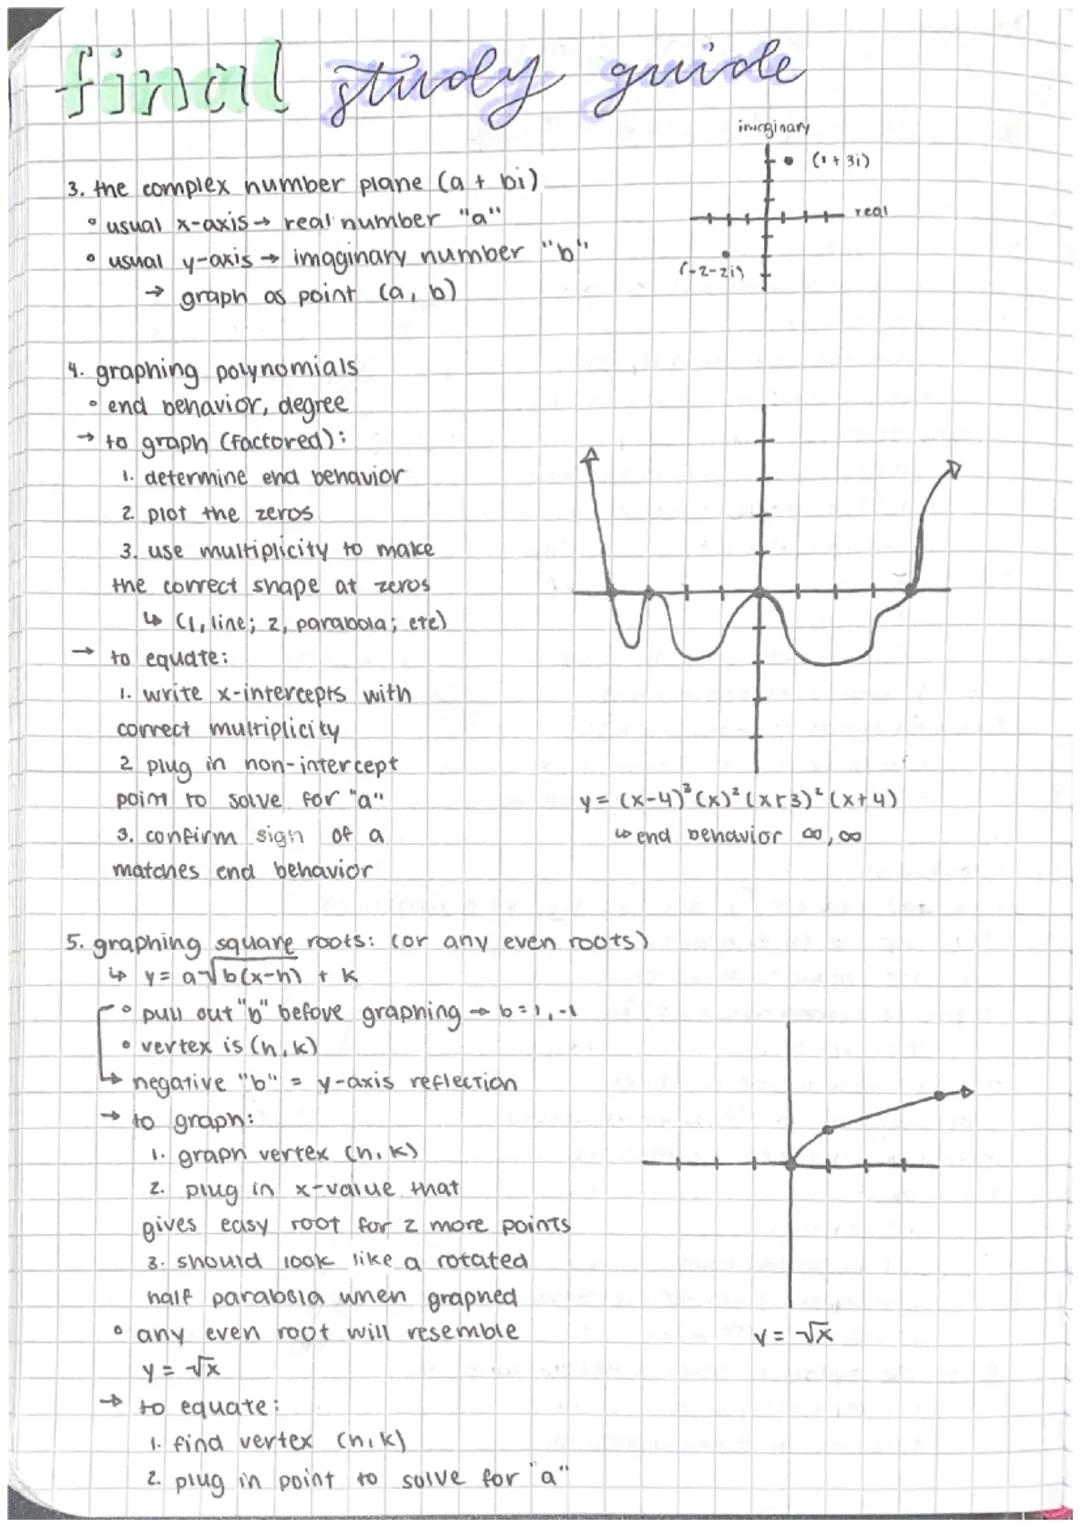 final study guide
imaginary
(1 + 3i)
real
(-2-2i)
3. the complex number plane (a + bi)
◦ usual x-axis → real number "a"
◦ usual y-axis → imaginary number "b"
→ graph as point (a, b)
4. graphing polynomials
◦ end behavior, degree
→ to graph (factored):
1. determine end behavior
2. plot the zeros
3. use multiplicity to make
the correct shape at zeros
↳ (1, line; 2, parabola; etc)
→ to equate:
1. write x-intercepts with
correct multiplicity
2 plug in non-intercept
point to solve for "a"
3. confirm sign of a
matches end behavior
y = (x-4)³(x)²(x+3)²(x+4)
↳ end behavior ∞, ∞
5. graphing square roots: (or any even roots)
↳ y = a√b(x-h) + k
◦ pull out "b" before graphing → b = 1, -1
◦ vertex is (h, k)
↳ negative "b" = y-axis reflection
→ to graph:
1. graph vertex (h, k)
2. plug in x-value that
gives easy root for 2 more points
3. should look like a rotated
half parabola when graphed
◦ any even root will resemble
y = √x
→ to equate:
1. find vertex (h, k)
2. plug in point to solve for "a"
y = √x